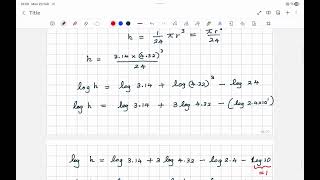 Title
k = 1/24 πr³ = πr³/24
k = 3.14 × (4.32)³/24
log k = log 3.14 + log (4.32)³ − log 24
log k = log 3.14 + 3 log 4.32 − (log 2.4×10¹)
log k = log 3.14 + 3 log 4.32 − log 2.4 − log 10
= 1